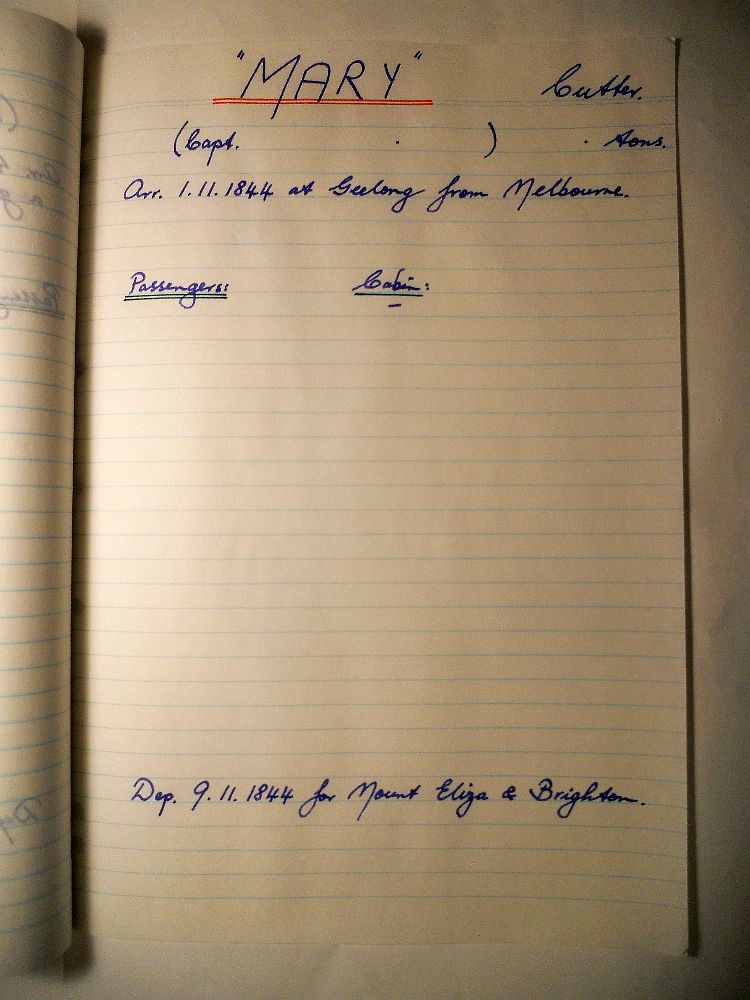 "MARY" Cutter.
(Capt. . ) . tons.
Arr. 1.11.1844 at Geelong from Melbourne.
Passengers: Cabin:
–
Dep. 9.11.1844 for Mount Eliza & Brighton.